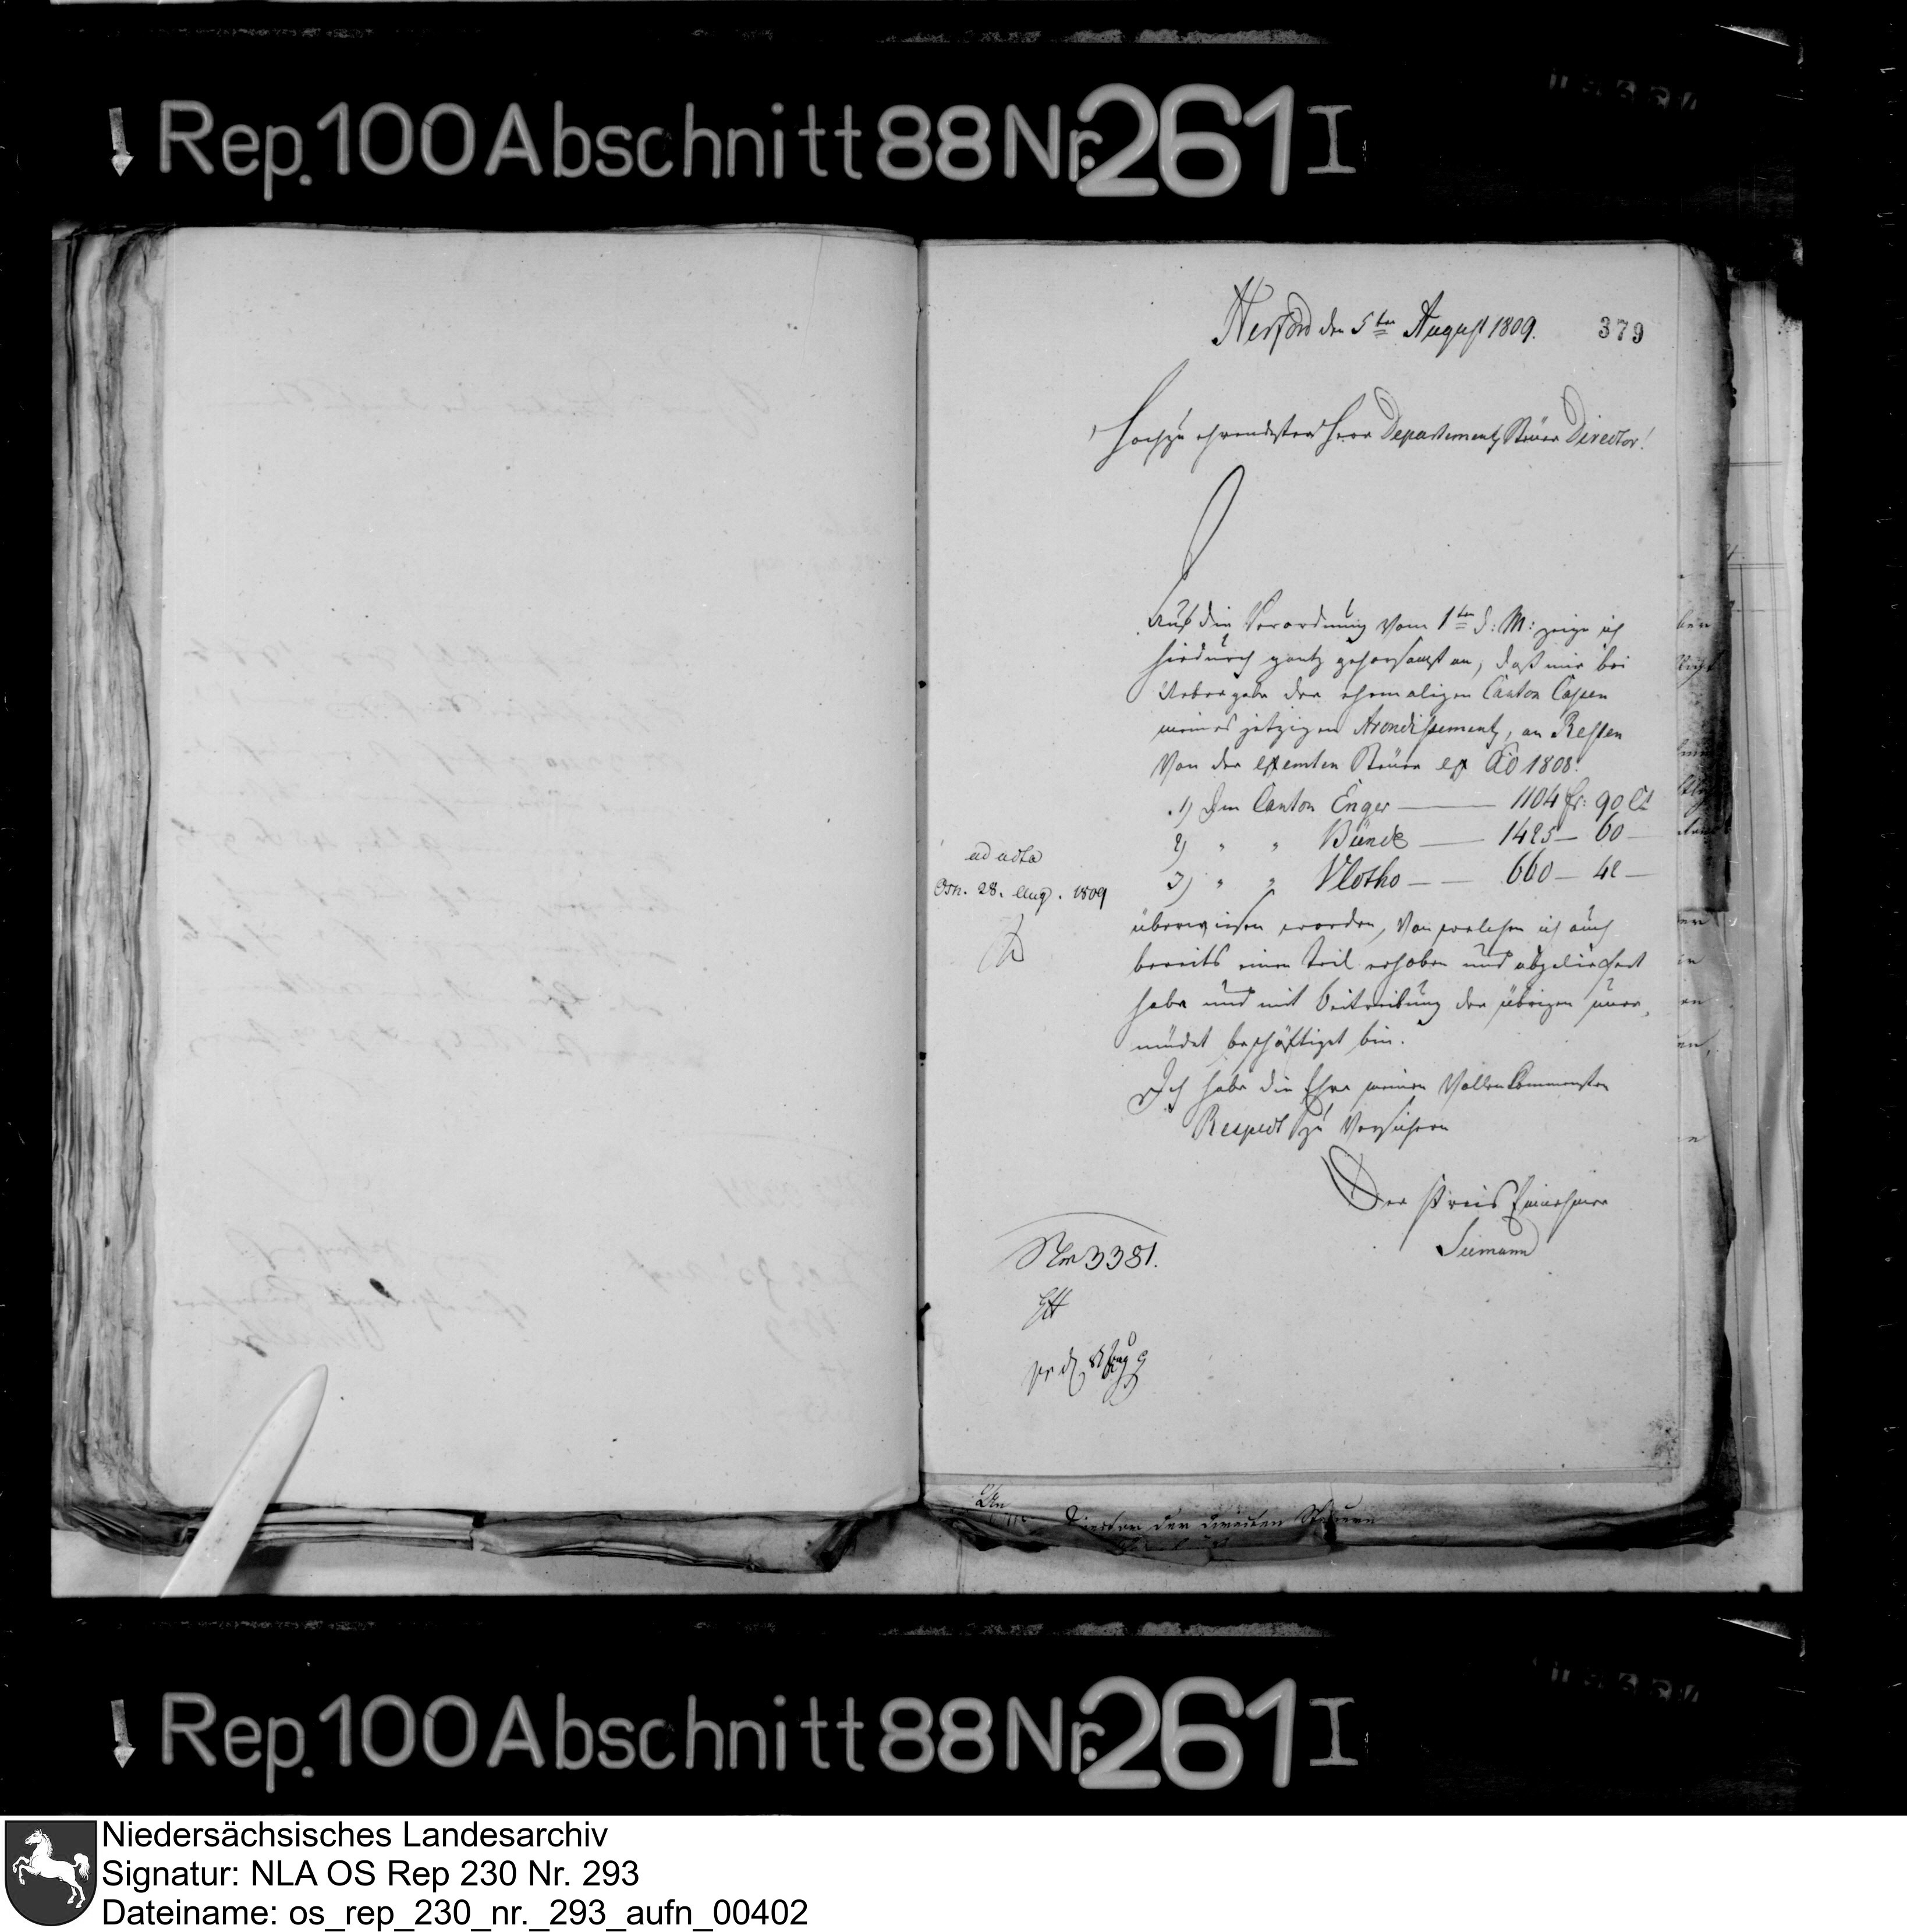 Rep. 100 Abschnitt 88 Nr. 261 I
Herford den 5ten August 1809.
379
Hochzu ehrendster Herr Departements Steuer Director!
Auf die Verordnung vom 1ten d: M: zeige ich
hierdurch gantz gehorsamst an, daß mir bei
Uebergabe der ehemaligen Canton Cassen
meines jetzigen Arondissements, an Resten
von der exemten Steuer ex Ao 1808.
1) Im Canton Enger — 1104 fr: 90 Ct
2) " " Bünde — 1425 — 60 —
3) " " Vlotho — 660 — 42 —
überwiesen worden, von welchen ich auch
bereits einen Teil erhoben und abgeliefert
habe und mit Beitreibung der übrigen uner-
müdet beschäftiget bin.
Ich habe die Ehre meinen vollenkommensten
Respect zu versichern
Der Kreis Einnehmer
Siemann
ad acta
Osn. 28. Aug. 1809
No 3381.
pr d 8 Aug 9
An
Director der directen Steuern
Rep. 100 Abschnitt 88 Nr. 261 I
Niedersächsisches Landesarchiv
Signatur: NLA OS Rep 230 Nr. 293
Dateiname: os_rep_230_nr._293_aufn_00402